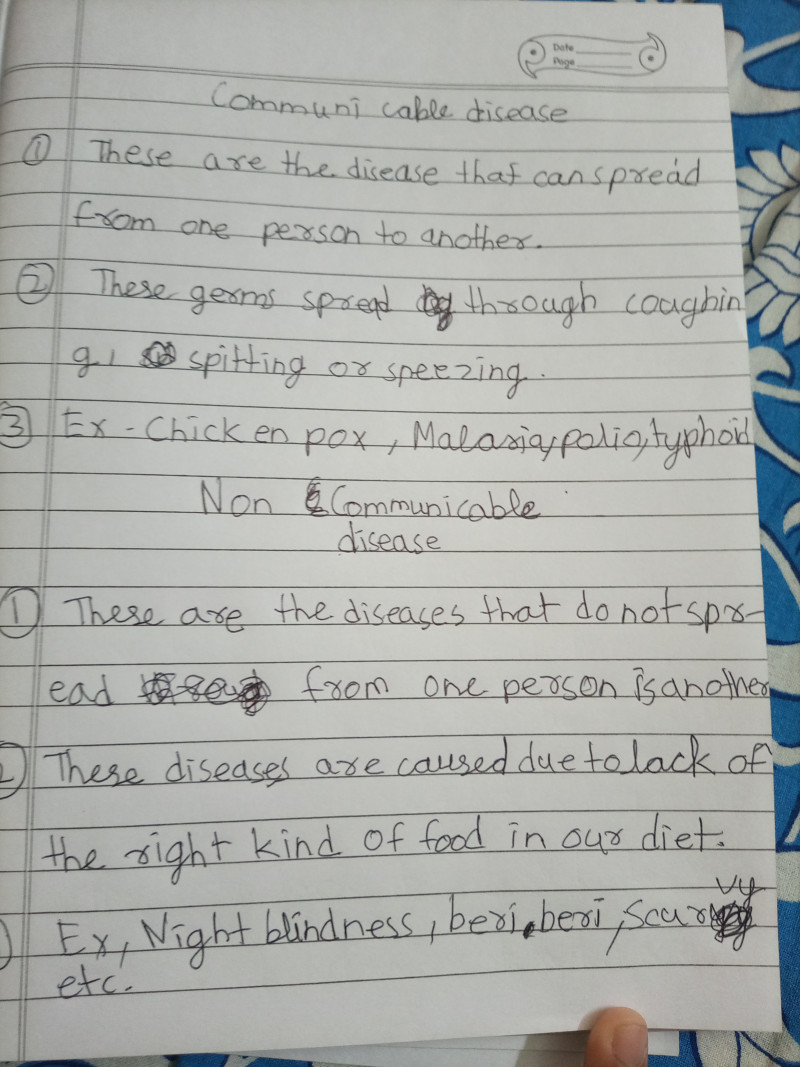 Date
Page
Communi cable disease
① These are the disease that can spread
from one person to another.
② These germs spread through coughin
g, spitting or speezing.
③ Ex - Chicken pox, Malaria, polio, typhoid
Non Communicable
disease
① These are the diseases that do not spr-
ead from one person is another
② These diseases are caused due to lack of
the right kind of food in our diet.
Ex, Night blindness, beri, beri, Scurvy
etc.